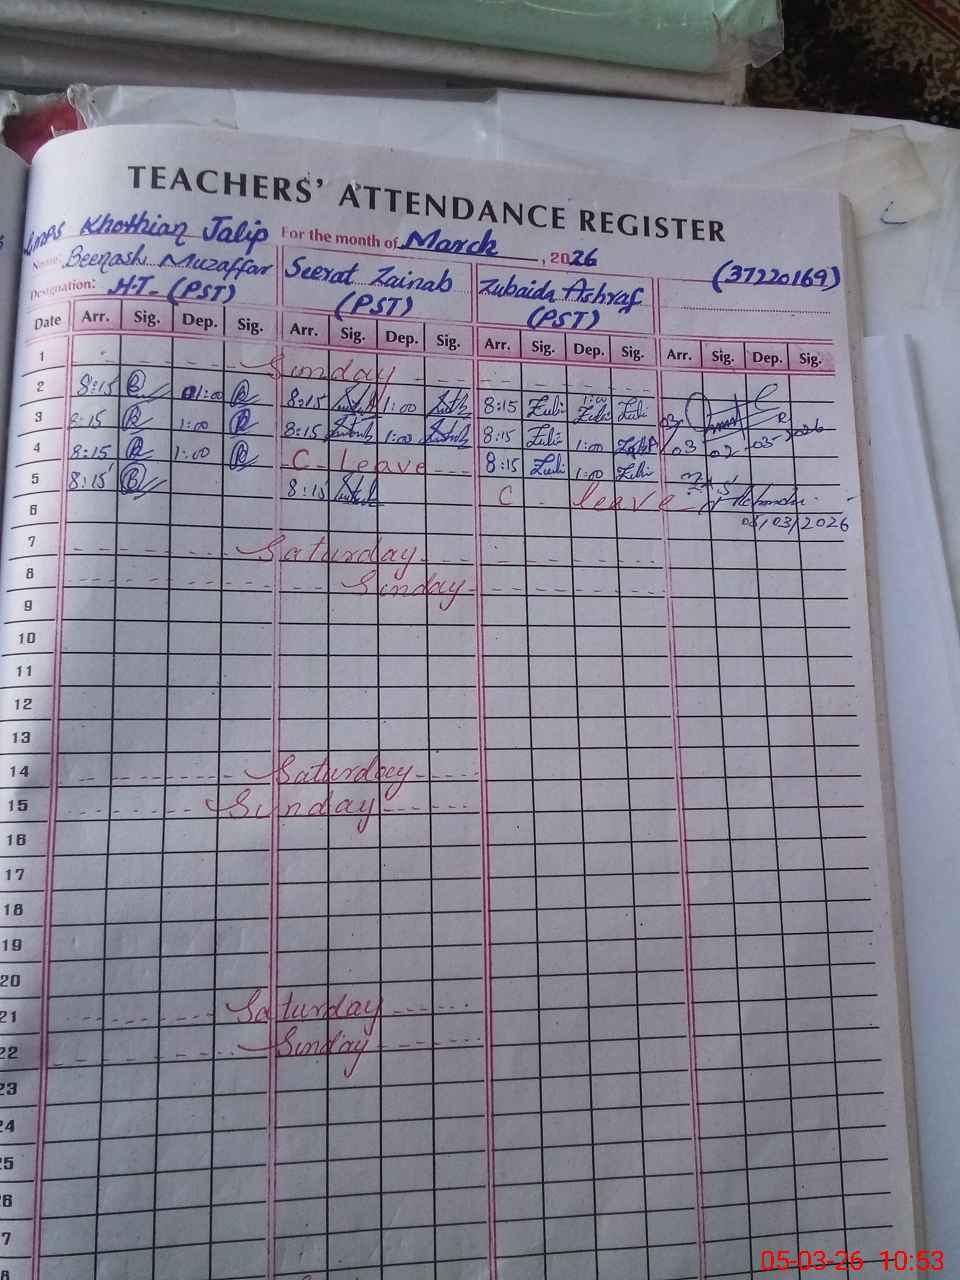 TEACHERS' ATTENDANCE REGISTER
GMPS Khothian Jalip For the month of March, 2026
Name: Beenash Muzaffar Seerat Zainab Zubaida Ashraf (37220169)
Designation: H.T- (PST) (PST) (PST)
Date Arr. Sig. Dep. Sig. Arr. Sig. Dep. Sig. Arr. Sig. Dep. Sig. Arr. Sig. Dep. Sig.
1 Sunday
2 8:15 1:00 8:15 1:00 8:15 Zubi 1:00 Zubi Zubi
3 8:15 1:00 8:15 1:00 8:15 Zubi 1:00 03 02 03 2026
4 8:15 1:00 C- Leave 8:15 Zubi 1:00 Zubi
5 8:15 8:15 C leave
6 05/03/2026
7 Saturday
8 Sunday
9
10
11
12
13
14 Saturday
15 Sunday
16
17
18
19
20
21 Saturday
22 Sunday
23
24
25
26
05-03-26 10:53